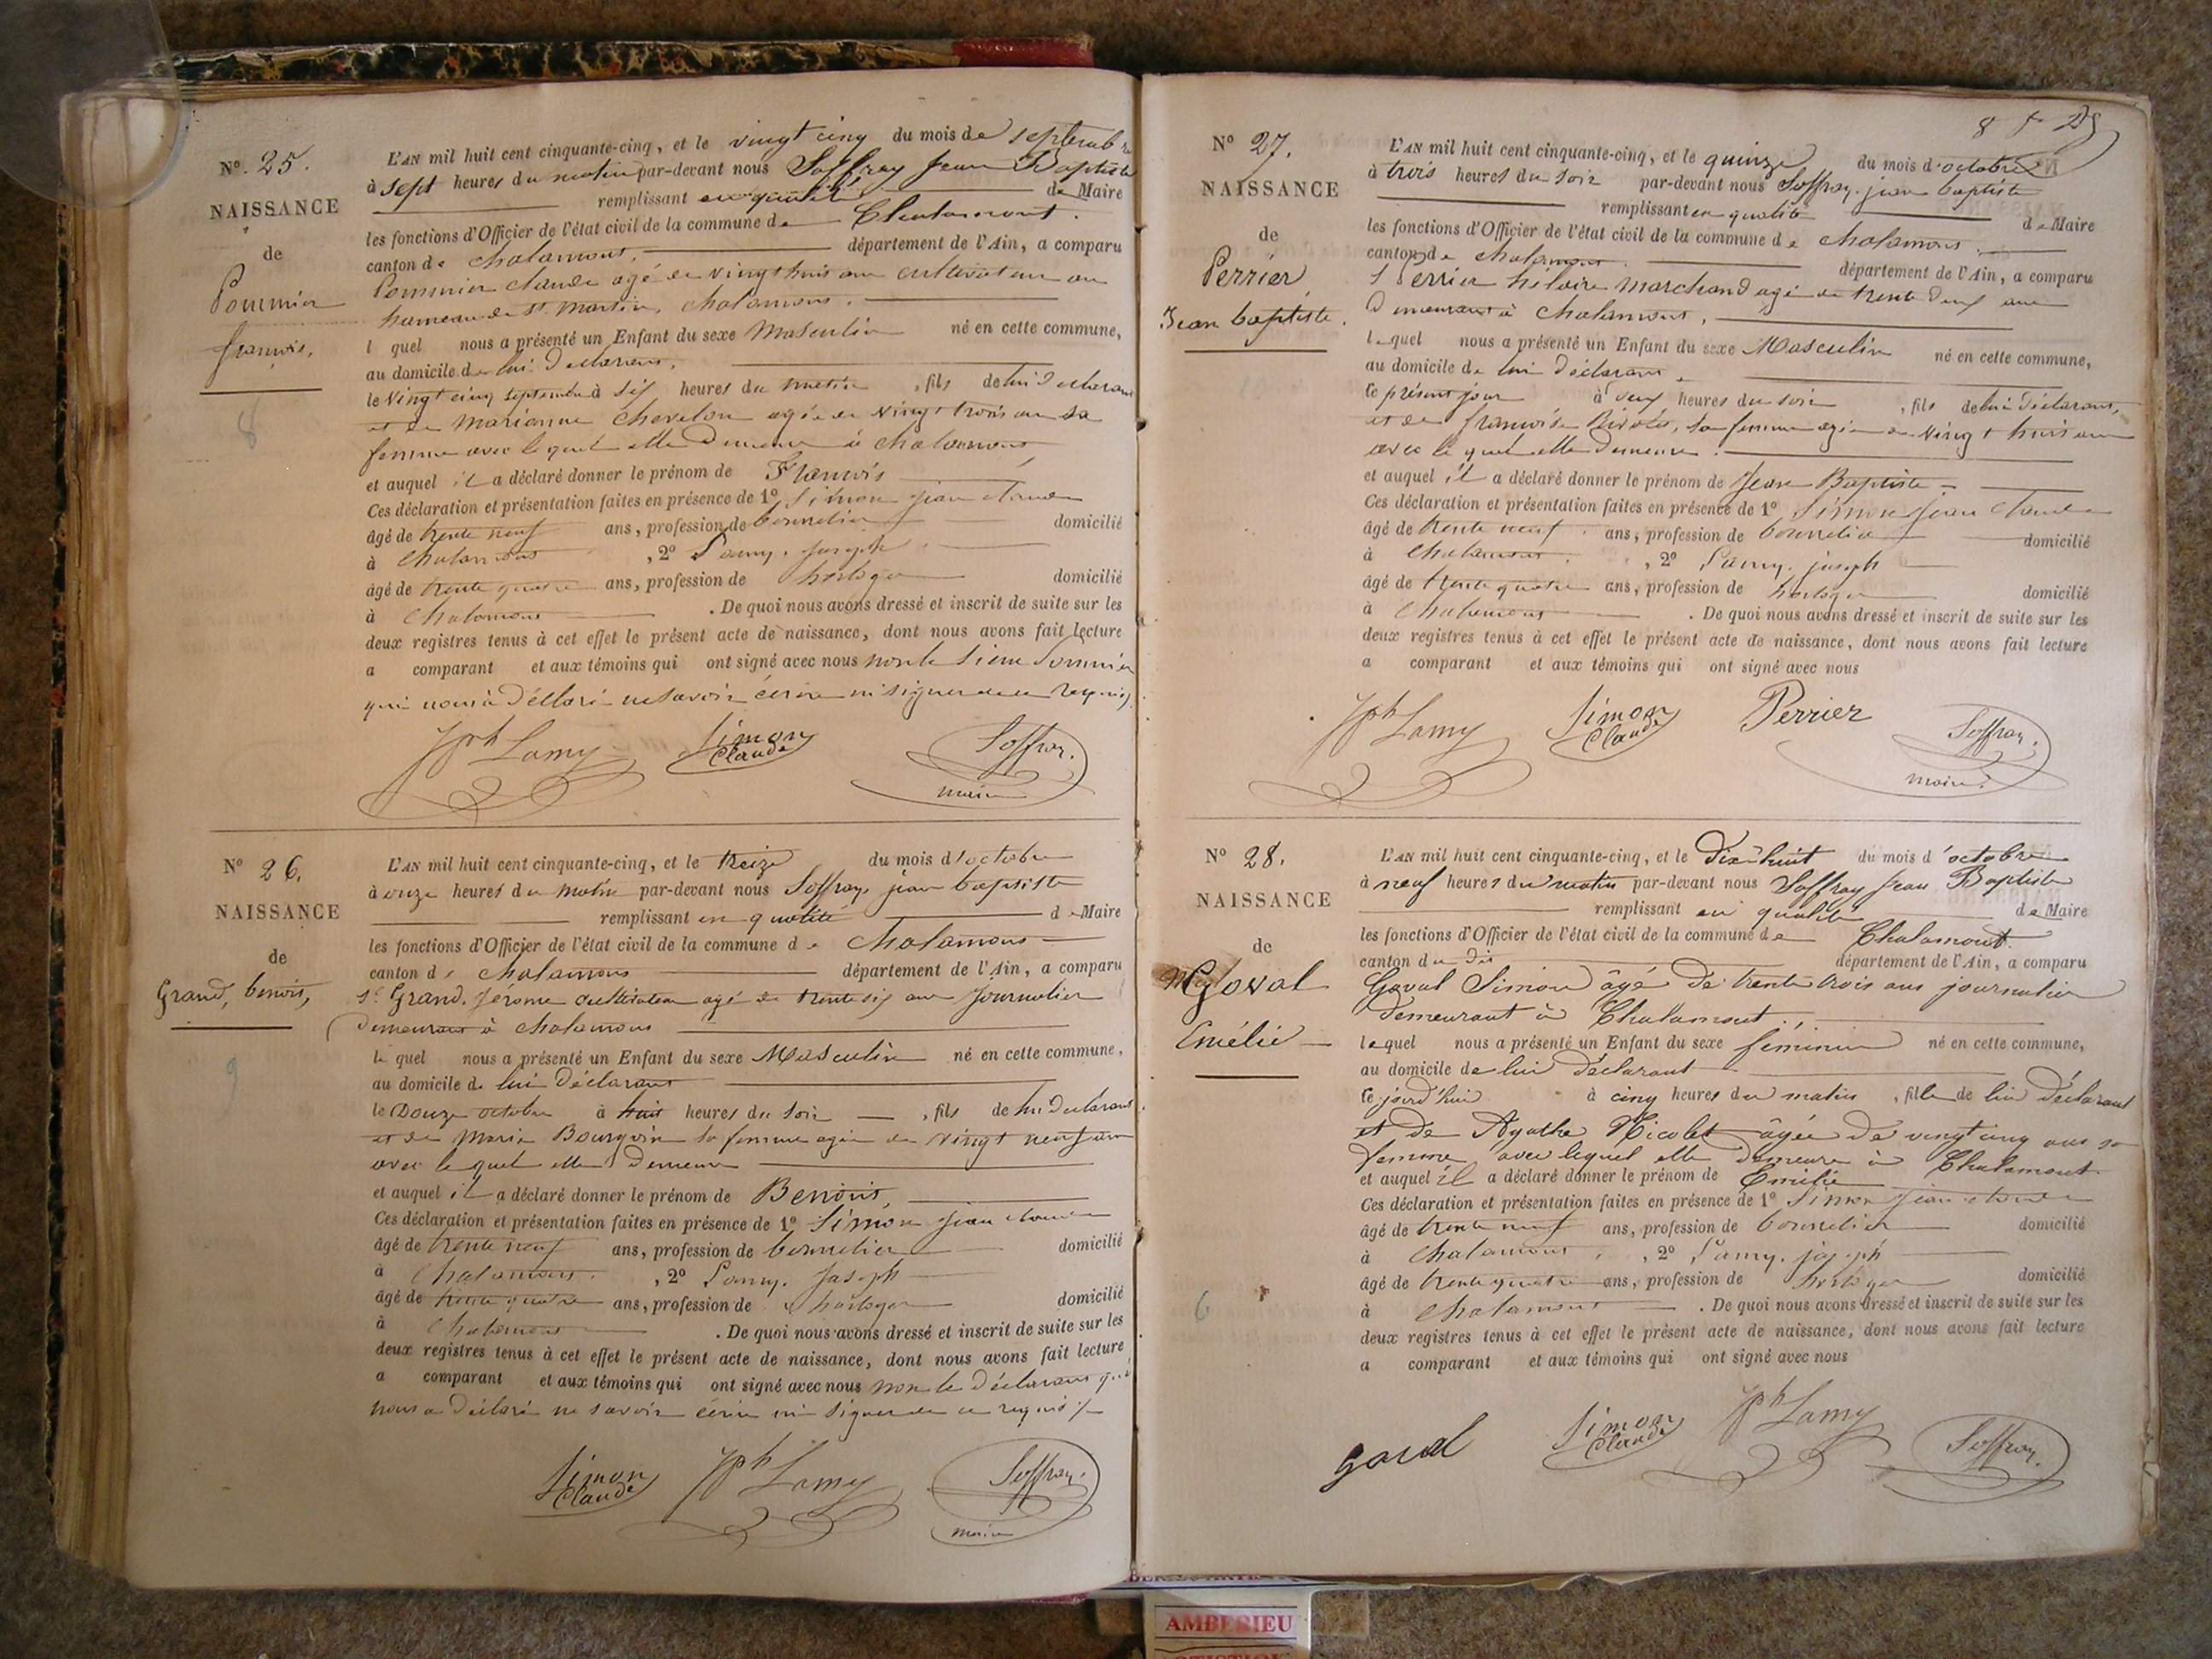 Nº. 25.
NAISSANCE
de
Pommier
françois,
8
L'AN mil huit cent cinquante-cinq, et le vingt cinq du mois de septembre
à sept heures du matin par-devant nous Soffray Jean Baptiste
remplissant en qualité de Maire
les fonctions d'Officier de l'état civil de la commune de Chalamont.
canton de chalamont, département de l'Ain, a comparu
Pommier claude agé de vingt huit ans cultivateur au
hameau de St. Martin, chalamont.
l quel nous a présenté un Enfant du sexe Masculin né en cette commune,
au domicile de lui Déclarant,
le vingt cinq septembre à six heures du matin , fils de lui Déclarant
et de Marianne Chevelon agée de vingt trois ans sa
femme avec lequel elle Demeure à chalamont
et auquel il a déclaré donner le prénom de François
Ces déclaration et présentation faites en présence de 1º Simon jean claude
âgé de trente neuf ans, profession de bourrelier domicilié
à chalamont , 2º Lamy. Joseph
âgé de trente quatre ans, profession de horloger domicilié
à chalamont . De quoi nous avons dressé et inscrit de suite sur les
deux registres tenus à cet effet le présent acte de naissance, dont nous avons fait lecture
a comparant et aux témoins qui ont signé avec nous non le sieur Pommier
qui nous à Déclaré ne savoir écrire ni signer de ce requis
Jph Lamy Simon Claude Soffray. maire
Nº 26.
NAISSANCE
de
Grand, benoit,
9
L'AN mil huit cent cinquante-cinq, et le treize du mois d'octobre
à onze heures du matin par-devant nous Soffray jean baptiste
remplissant en qualité de Maire
les fonctions d'Officier de l'état civil de la commune de chalamont
canton de chalamont département de l'Ain, a comparu
sr Grand. Jérome cultivateur agé de trente six ans Journalier
Demeurant à chalamont
le quel nous a présenté un Enfant du sexe Masculin né en cette commune,
au domicile de lui Déclarant
le Douze octobre à huit heures du soir , fils de lui Déclarant
et de Marie Bourgoin sa femme agée de vingt neuf ans
avec lequel elle Demeure
et auquel il a déclaré donner le prénom de Benoit,
Ces déclaration et présentation faites en présence de 1º Simon jean claude
âgé de trente neuf ans, profession de bourrelier domicilié
à Chalamont. , 2º Lamy. Joseph
âgé de trente quatre ans, profession de horloger domicilié
à chalamont . De quoi nous avons dressé et inscrit de suite sur les
deux registres tenus à cet effet le présent acte de naissance, dont nous avons fait lecture
a comparant et aux témoins qui ont signé avec nous non le déclarant qui
nous a Déclaré ne savoir écrire ni signer de ce requis
Simon Claude Jph Lamy Soffray. maire
Nº 27.
NAISSANCE
de
Perrier
Jean baptiste.
L'AN mil huit cent cinquante-cinq, et le quinze du mois d'octobre
à trois heures du soir par-devant nous Soffray. jean baptiste
remplissant en qualité de Maire
les fonctions d'Officier de l'état civil de la commune de chalamont.
canton de chalamont. département de l'Ain, a comparu
s Perrier hilaire Marchand agé de trente Deux ans
Demeurant à chalamont,
lequel nous a présenté un Enfant du sexe Masculin né en cette commune,
au domicile de lui Déclarant
ce présent jour à Deux heures du soir , fils de lui Déclarant,
et de françoise sa femme agée de vingt huit ans
avec le quel elle Demeure.
et auquel il a déclaré donner le prénom de Jean Baptiste
Ces déclaration et présentation faites en présence de 1º Simon jean claude
âgé de trente neuf. ans, profession de bourrelier domicilié
à chalamont. , 2º Lamy. joseph
âgé de trente quatre ans, profession de horloger domicilié
à chalamont . De quoi nous avons dressé et inscrit de suite sur les
deux registres tenus à cet effet le présent acte de naissance, dont nous avons fait lecture
a comparant et aux témoins qui ont signé avec nous
Jph Lamy Simon Claude Perrier Soffray. maire
Nº 28.
NAISSANCE
de
Goval
Emélie
6
L'AN mil huit cent cinquante-cinq, et le Dix-huit du mois d'octobre
à neuf heures du matin par-devant nous Soffray Jean Baptiste
remplissant en qualité de Maire
les fonctions d'Officier de l'état civil de la commune de Chalamont.
canton du dit département de l'Ain, a comparu
Goval Simon âgé de trente trois ans journalier
demeurant à Chalamont.
lequel nous a présenté un Enfant du sexe féminin né en cette commune,
au domicile de lui déclarant
ce jourd'hui à cinq heures du matin , fille de lui déclarant
et de Agathe Nicolet âgée de vingt cinq ans sa
femme, avec lequel elle demeure à Chalamont.
et auquel il a déclaré donner le prénom de Emélie
Ces déclaration et présentation faites en présence de 1º Simon jean claude
âgé de trente neuf ans, profession de bourrelier domicilié
à chalamont , 2º Lamy. joseph
âgé de trente quatre ans, profession de horloger domicilié
à chalamont . De quoi nous avons dressé et inscrit de suite sur les
deux registres tenus à cet effet le présent acte de naissance, dont nous avons fait lecture
a comparant et aux témoins qui ont signé avec nous
goval Simon Claude Jph Lamy Soffray.
AMBERIEU